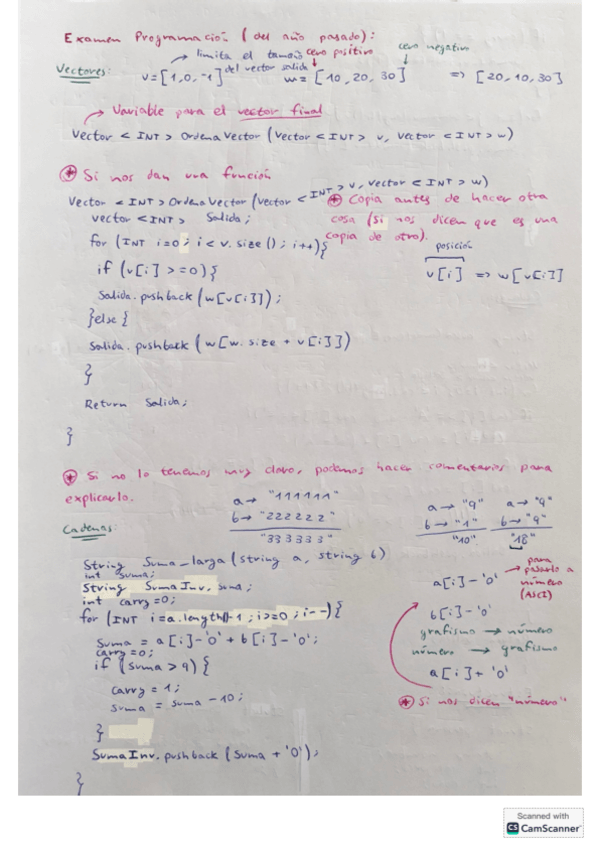 Examen Programación (del año pasado):
limita el tamaño cero positivo cero negativo
del vector salida
Vectores: v=[1,0,-1] w=[10,20,30] => [20,10,30]
Variable para el vector final
Vector <INT> OrdenaVector (Vector <INT> v, Vector <INT> w)
Si nos dan una función
Vector <INT> OrdenaVector (Vector <INT> v, Vector <INT> w)
Copia antes de hacer otra
vector <INT> Salida;
cosa (si nos dicen que es una
copia de otro).
for (INT i=0; i < v.size(); i++){
posición
if (v[i] >=0){
v[i] => w[v[i]]
Salida.pushback (w[v[i]]);
}else{
Salida.pushback (w[w.size + v[i]])
}
Return Salida;
}
Si no lo tenemos muy claro, podemos hacer comentarios para
explicarlo.
a→ "111111"
b→ "222222"
"333333"
a→ "9" a→ "9"
b→ "1" b→ "9"
"10" "18"
Cadenas:
String Suma_larga (string a, string b)
int suma;
String SumaInv. suma;
int carry=0;
for (INT i=a.length()-1; i>=0; i--){
Suma = a[i]-'0' + b[i]-'0';
carry=0;
if (suma > 9){
carry = 1;
suma = suma -10;
}
SumaInv.pushback (Suma + '0');
}
a[i]-'0'
para
pasarlo a
número
(ASCI)
b[i]-'0'
grafismo → número
número → grafismo
a[i]+'0'
Si nos dicen "número"
Scanned with
CS CamScanner